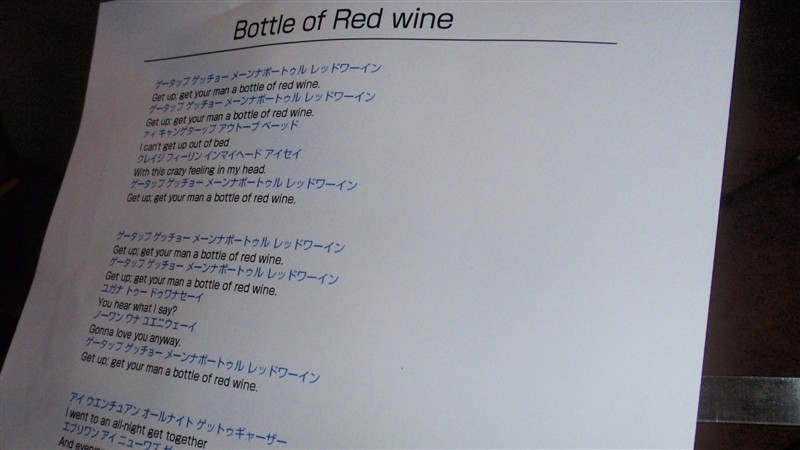 Bottle of Red wine
ゲータップ ゲッチョー メーンナボートゥル レッドワーイン
Get up; get your man a bottle of red wine.
ゲータップ ゲッチョー メーンナボートゥル レッドワーイン
Get up; get your man a bottle of red wine.
アィ キャンゲターップ アウトーブ ベーッド
I can't get up out of bed
クレイジ フィーリン インマイヘード アイセイ
With this crazy feeling in my head.
ゲータップ ゲッチョー メーンナボートゥル レッドワーイン
Get up; get your man a bottle of red wine.
ゲータップ ゲッチョー メーンナボートゥル レッドワーイン
Get up; get your man a bottle of red wine.
ゲータップ ゲッチョー メーンナボートゥル レッドワーイン
Get up; get your man a bottle of red wine.
ユガナ トゥー ドゥワナセーイ
You hear what I say?
ノーワン ワナ ユエニウェーイ
Gonna love you anyway.
ゲータップ ゲッチョー メーンナボートゥル レッドワーイン
Get up; get your man a bottle of red wine.
アイ ウエンチュアン オールナイト ゲットゥギャーザー
I went to an all-night get together
エブリワン アイ ニューワズ
And